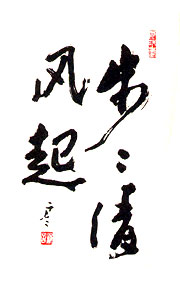 步々清
风起